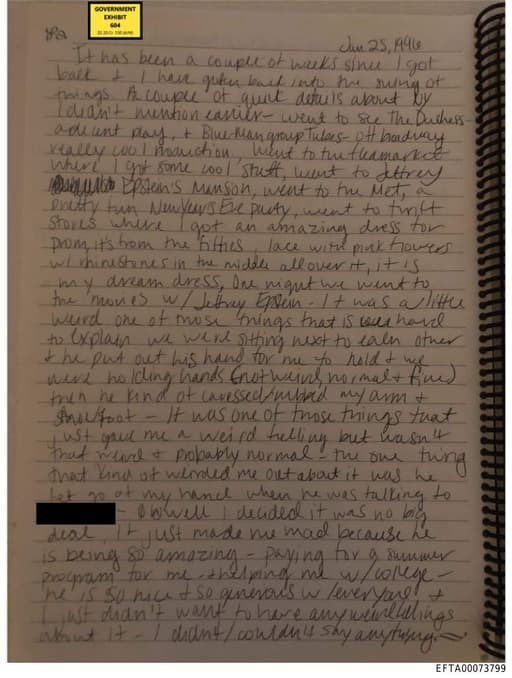 GOVERNMENT
EXHIBIT
604
Jan 25, 1996
It has been a couple of weeks since I got
back & I have gotten back into the swing of
things. A couple of quick details about NY
I didn't mention earlier - went to see The Duchess -
adecent play, & Blue Man group Tubes - off broadway
really cool production, went to the fleamarket
where I got some cool stuff, went to Jeffrey
Epstein's Mansion, went to the Met, a
pretty fun New Years Eve party, went to thrift
stores where I got an amazing dress for
prom, it's from the fifties, lace with pink flowers
w/ rhinestones in the middle all over it, it is
my dream dress, One night we went to
the movies w/ Jeffrey Epstein - It was a little
weird one of those things that is hard
to explain we were sitting next to each other
& he put out his hand for me to hold & we
were holding hands (not weird, normal & fine)
then he kind of caressed/rubbed my arm &
shoe/foot - It was one of those things that
just gave me a weird felling but wasn't
that weird & probably normal - the one thing
that kind of weirded me out about it was he
let go of my hand when he was talking to
- Ohwell I decided it was no big
deal, It just made me mad because he
is being so amazing - paying for a summer
program for me & helping me w/ college -
he is so nice & so generous w/ everyone &
I just didn't want to have any weird fellings
about it - I didn't/couldn't say anything
EFTA00073799